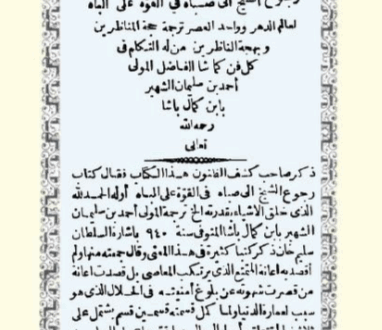 رجوع الشيخ الى صباه في القوة على الباه
لعالم الدهر وواحد العصر ترجمة حجة المناظرين
وبهجة الناظرين من له التكلم فى
كل فن كما شا الفاضل المولى
أحمد بن سليمان الشهير
بابن كمال باشا
رحمه الله
تعالى
ذكر صاحب كشف الظنون هذا الكتاب فقال كتاب
رجوع الشيخ الى صباه فى القوة على الباه أوله الحمد لله
الذى خلق الأشياء بقدرته الخ ترجمة المولى أحمد بن سليمان
الشهير بابن كمال باشا المتوفى سنة ٩٤٠ باشارة السلطان
سليم خان ذكر كتبا كثيرة فى هذا الفن وقال جمعته منها ولم
أقصد به اعانة المتمتع الذى يرتكب المعاصى بل قصدت اعانة
من قصرت شهوته عن بلوغ أمنيته فى الحلال الذى هو
سبب لعمارة الدنيا ولما كمل قسمته قسمين قسم يشتمل على